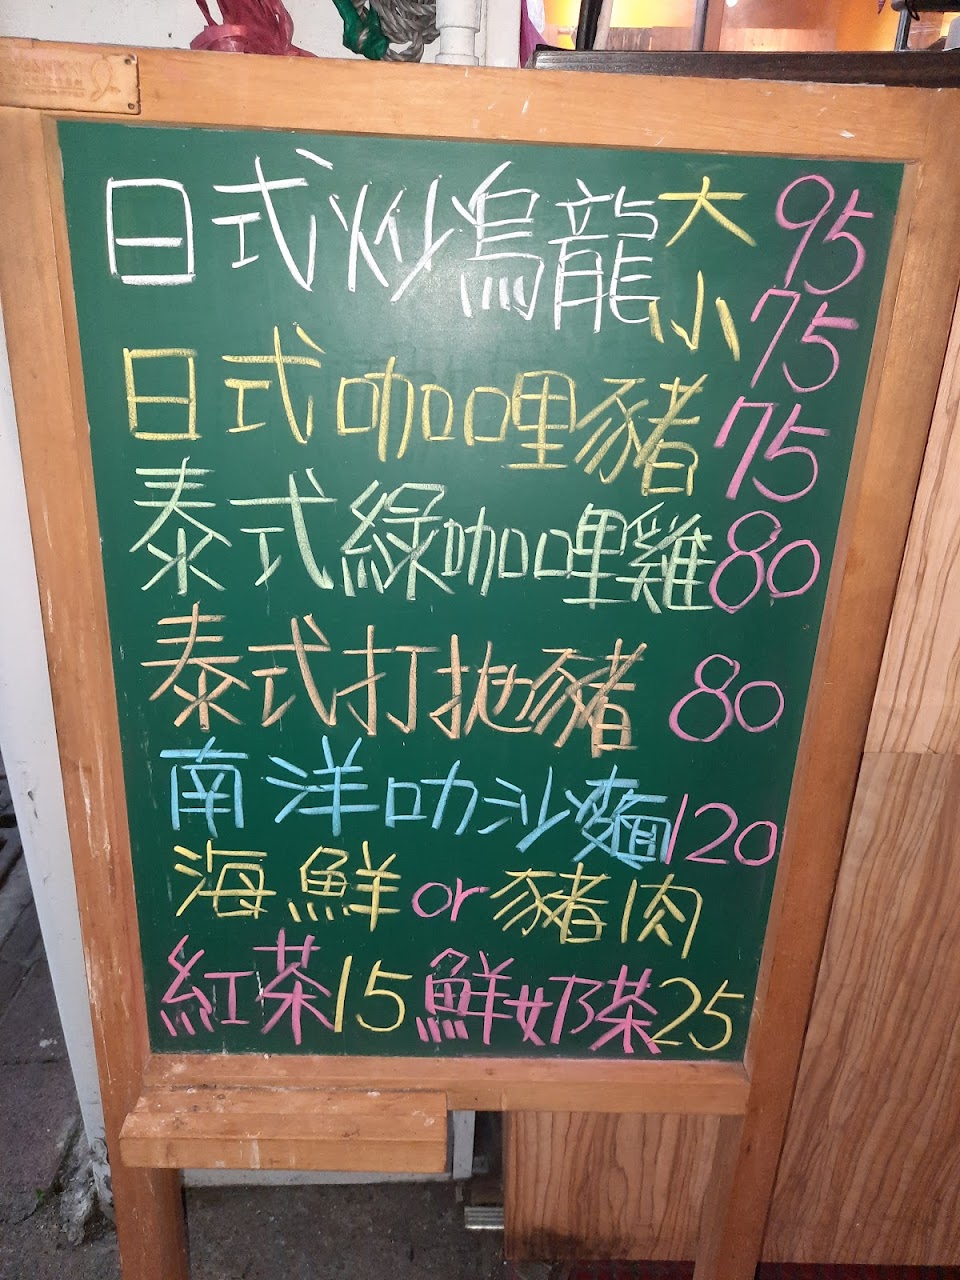 日式炒烏龍大 95
小 75
日式咖哩豬 75
泰式綠咖哩雞 80
泰式打拋豬 80
南洋叻沙麵 120
海鮮 or 豬肉
紅茶 15 鮮奶茶 25